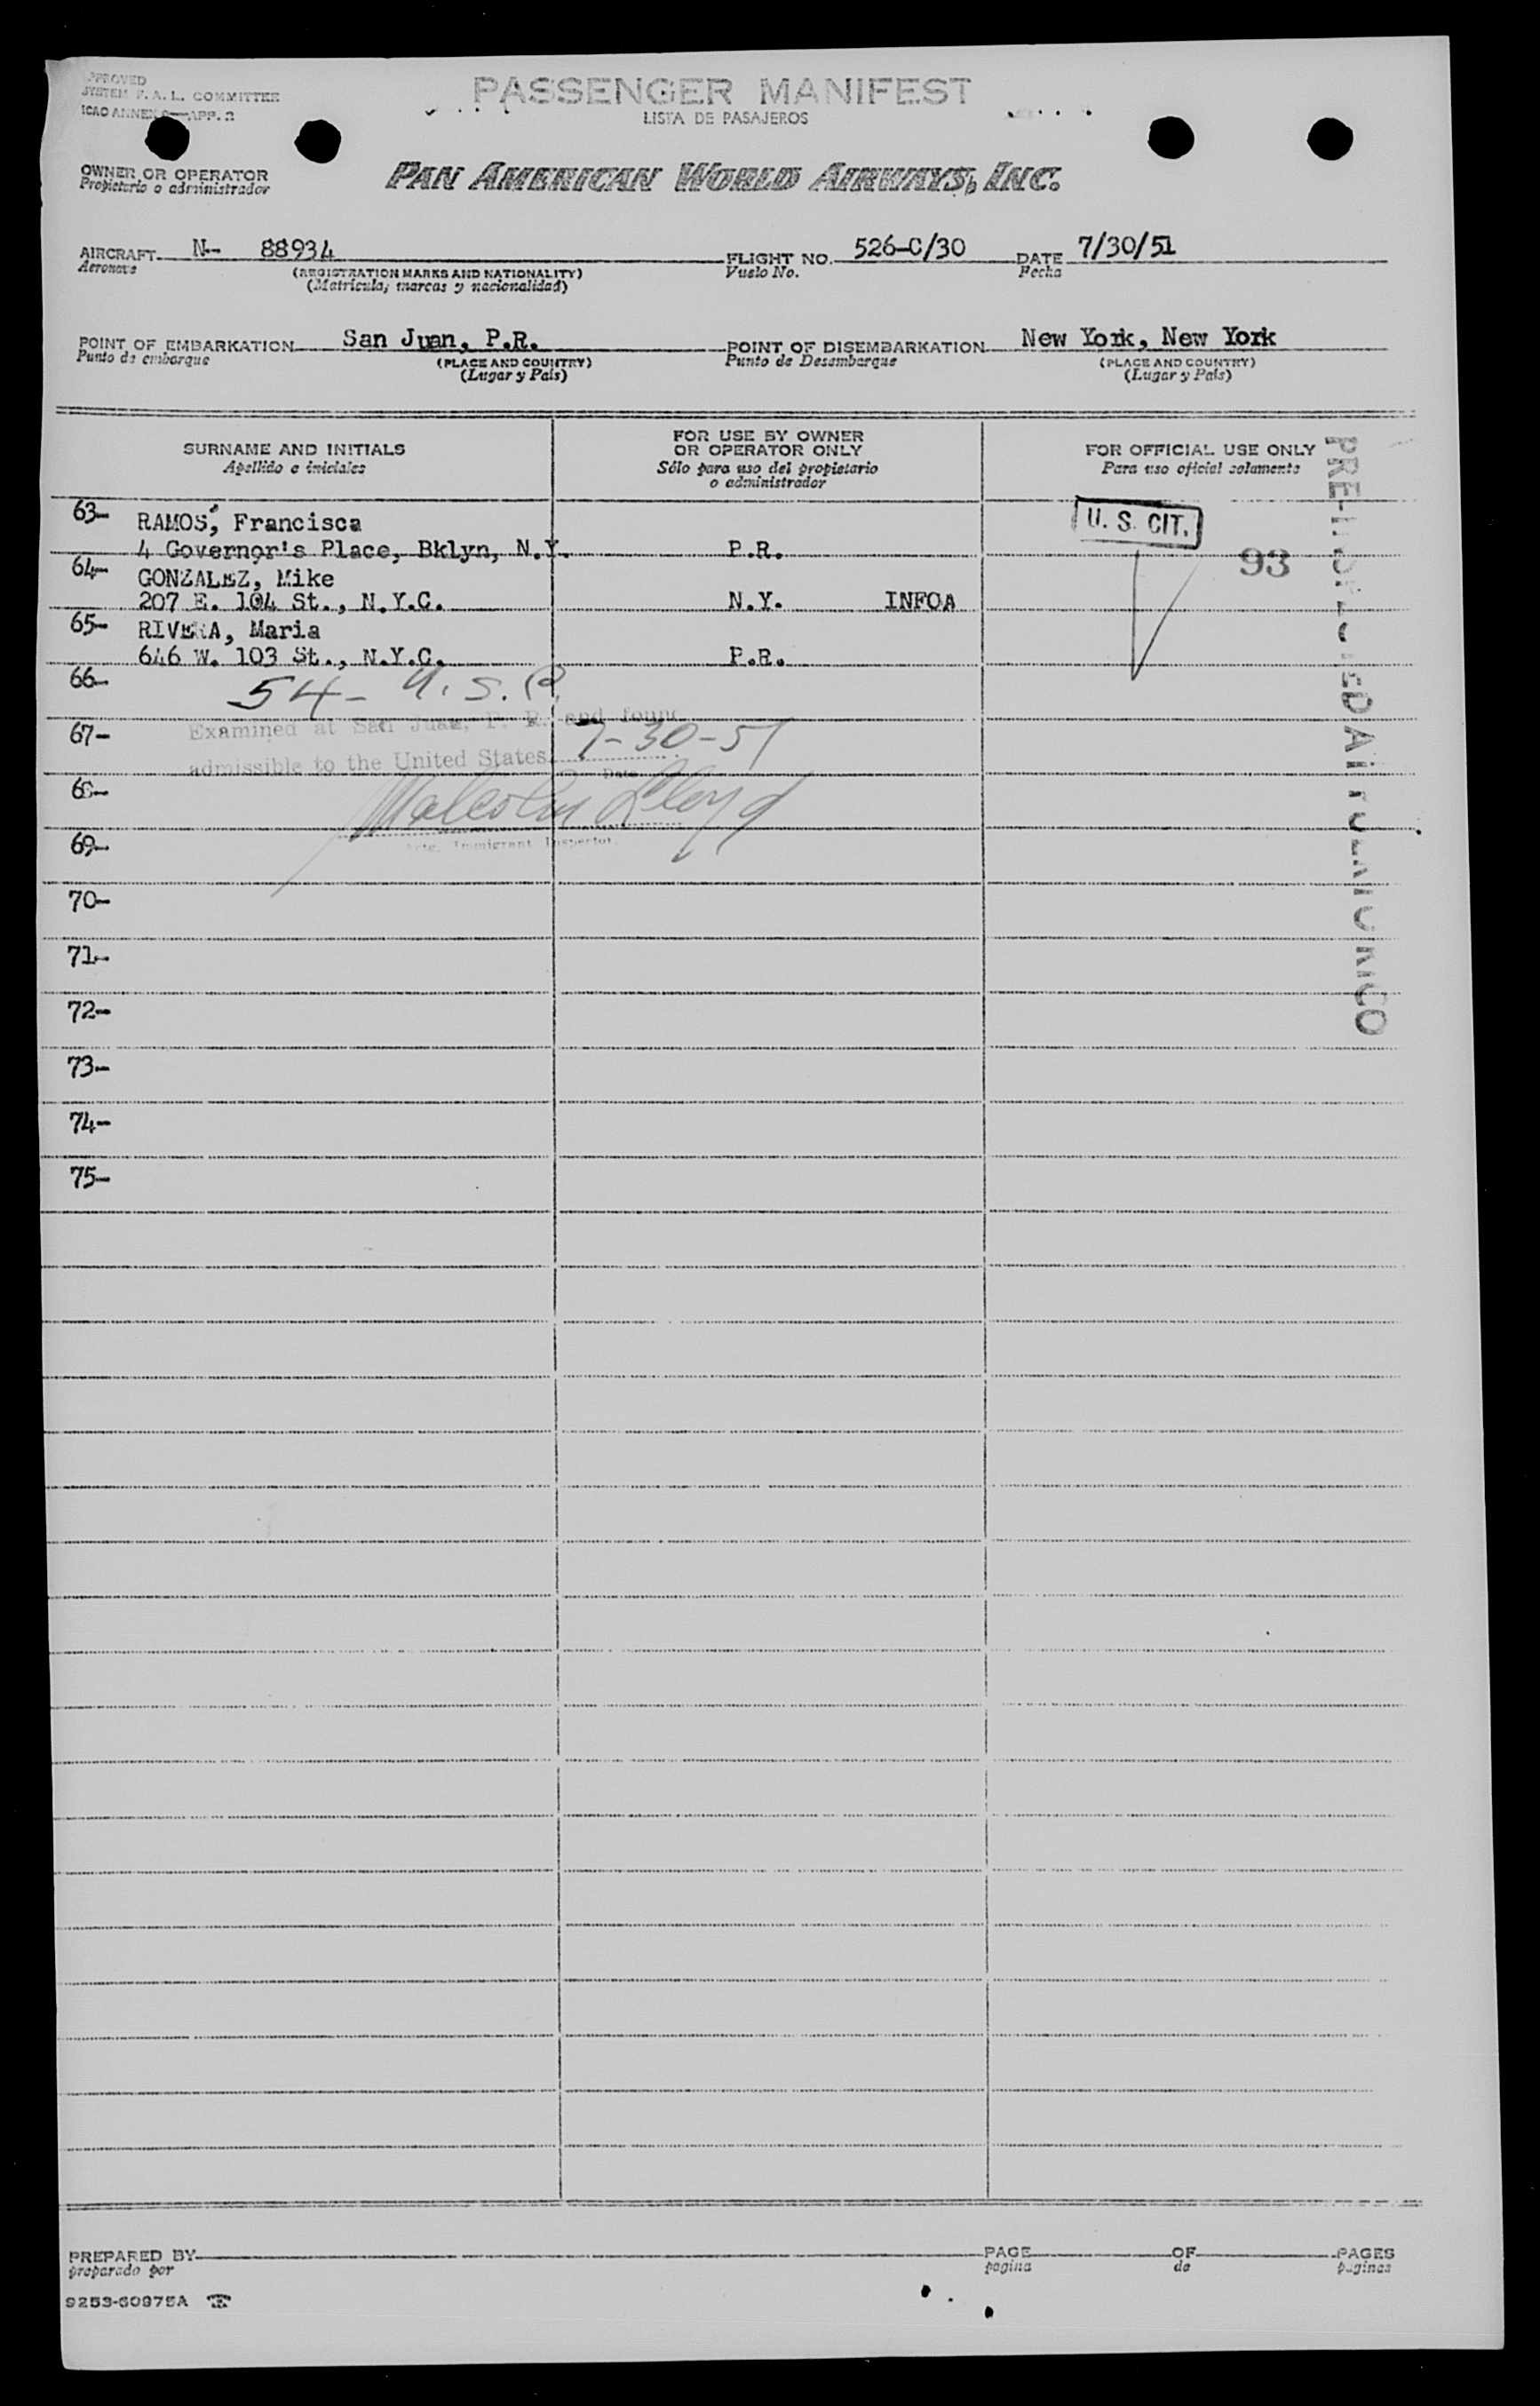 APPROVED
SYSTEM F.A.L. COMMITTEE
ICAO ANNEX APP. 2
PASSENGER MANIFEST
LISTA DE PASAJEROS
OWNER OR OPERATOR
Propietario o administrador
PAN AMERICAN WORLD AIRWAYS, INC.
AIRCRAFT N- 88934 FLIGHT NO. 526-C/30 DATE 7/30/51
Aeronave (REGISTRATION MARKS AND NATIONALITY) Vuelo No. Fecha
(Matrícula, marcas y nacionalidad)
POINT OF EMBARKATION San Juan, P.R. POINT OF DISEMBARKATION New York, New York
Punto de embarque (PLACE AND COUNTRY) Punto de Desembarque (PLACE AND COUNTRY)
(Lugar y País) (Lugar y País)
SURNAME AND INITIALS FOR USE BY OWNER OR OPERATOR ONLY FOR OFFICIAL USE ONLY
Apellido e iniciales Sólo para uso del propietario o administrador Para uso oficial solamente
63- RAMOS, Francisca U. S. CIT.
4 Governor's Place, Bklyn, N.Y. P.R. 93
64- GONZALEZ, Mike
207 E. 104 St., N.Y.C. N.Y. INFOA
65- RIVERA, Maria
646 W. 103 St., N.Y.C. P.R.
66-
54- U.S.C.
67- Examined at San Juan, P. R. and found
admissible to the United States 7-30-51
Date
68-
Malcolm Lloyd
69- Immigrant Inspector
70-
71-
72-
73-
74-
75-
PREPARED BY PAGE OF PAGES
preparado por pagina de paginas
9253-60975A